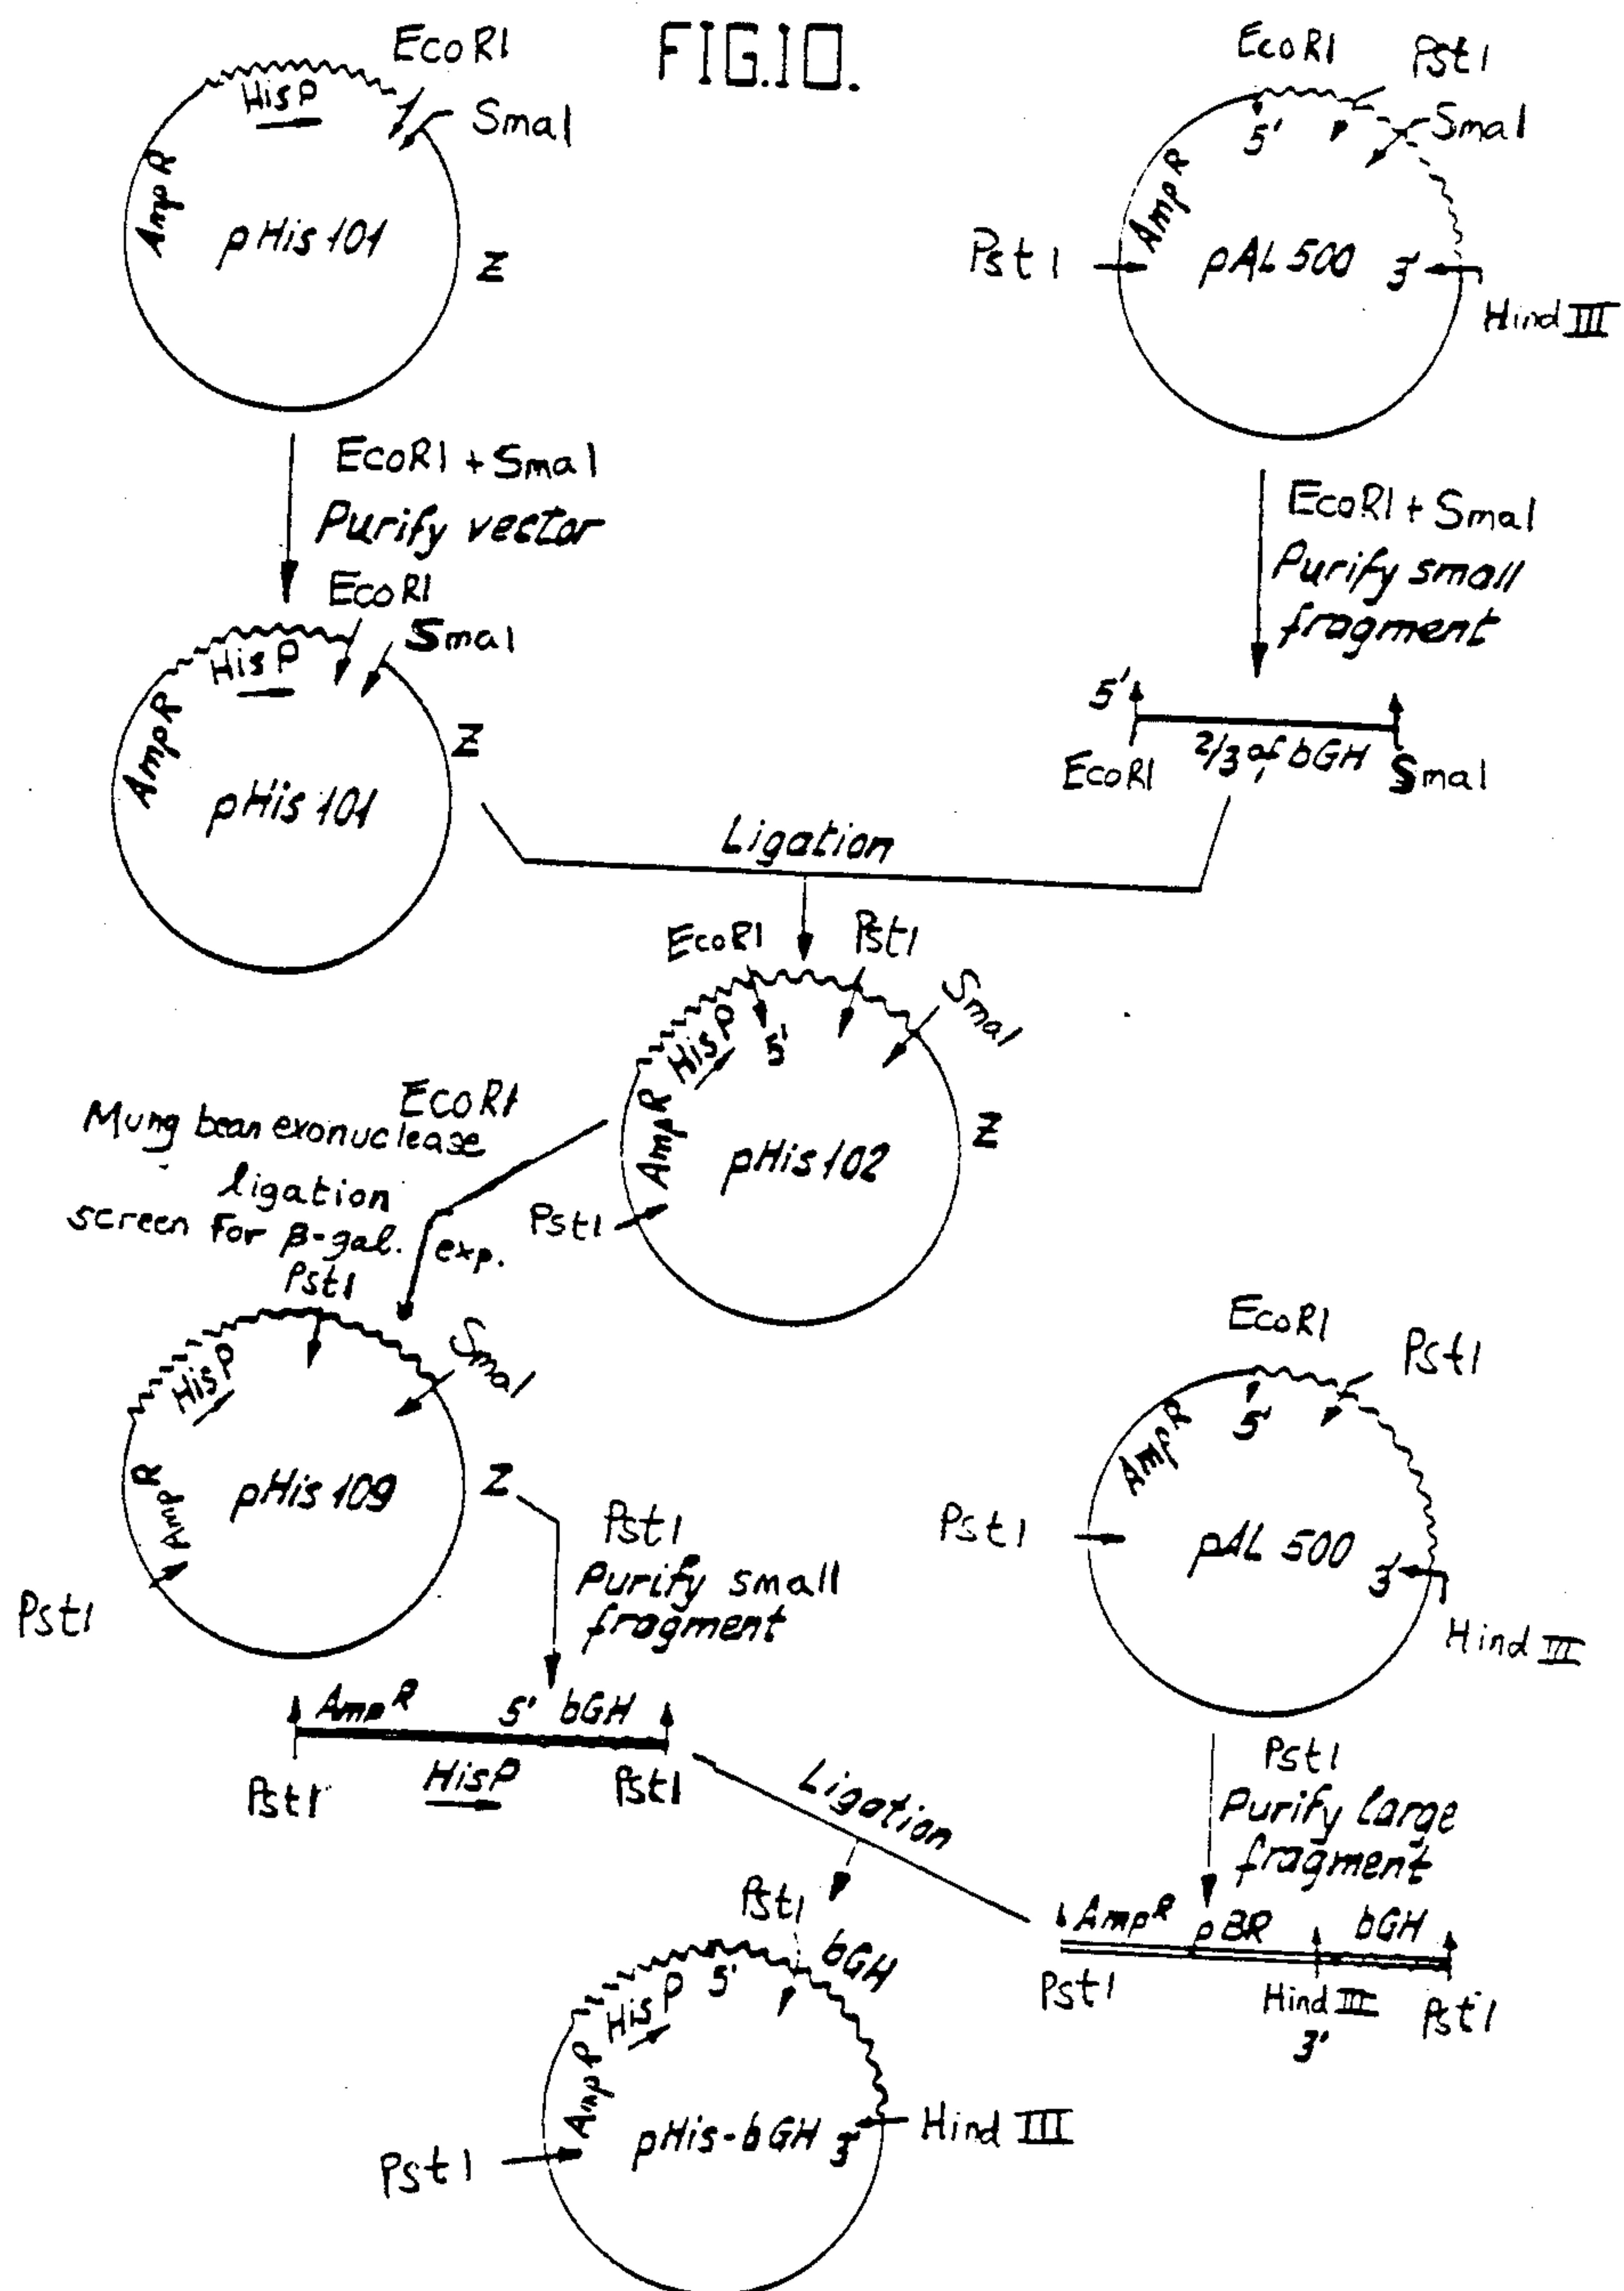 FIG.10.
EcoRI
HisP
SmaI
AmpR
pHis 101
Z
EcoRI
Pst1
SmaI
5'
AmpR
Pst1
pAL 500
3'
Hind III
EcoRI + SmaI
Purify vector
EcoRI + SmaI
Purify small
fragment
EcoRI
SmaI
HisP
AmpR
Z
pHis 101
5'
EcoRI
2/3 of bGH
SmaI
Ligation
EcoRI
Pst1
SmaI
HisP
5'
AmpR
pHis 102
Z
Pst1
EcoRI
Mung bean exonuclease
ligation
screen For β-gal. exp.
Pst1
SmaI
HisP
AmpR
pHis 109
Z
Pst1
EcoRI
Pst1
5'
AmpR
Pst1
pAL 500
3'
Hind III
Pst1
Purify small
fragment
AmpR
5' bGH
Pst1
HisP
Pst1
Pst1
Purify large
fragment
AmpR
pBR
bGH
Pst1
Hind III
3'
Pst1
Ligation
Pst1
bGH
HisP
5'
AmpR
pHis-bGH
3'
Hind III
Pst1